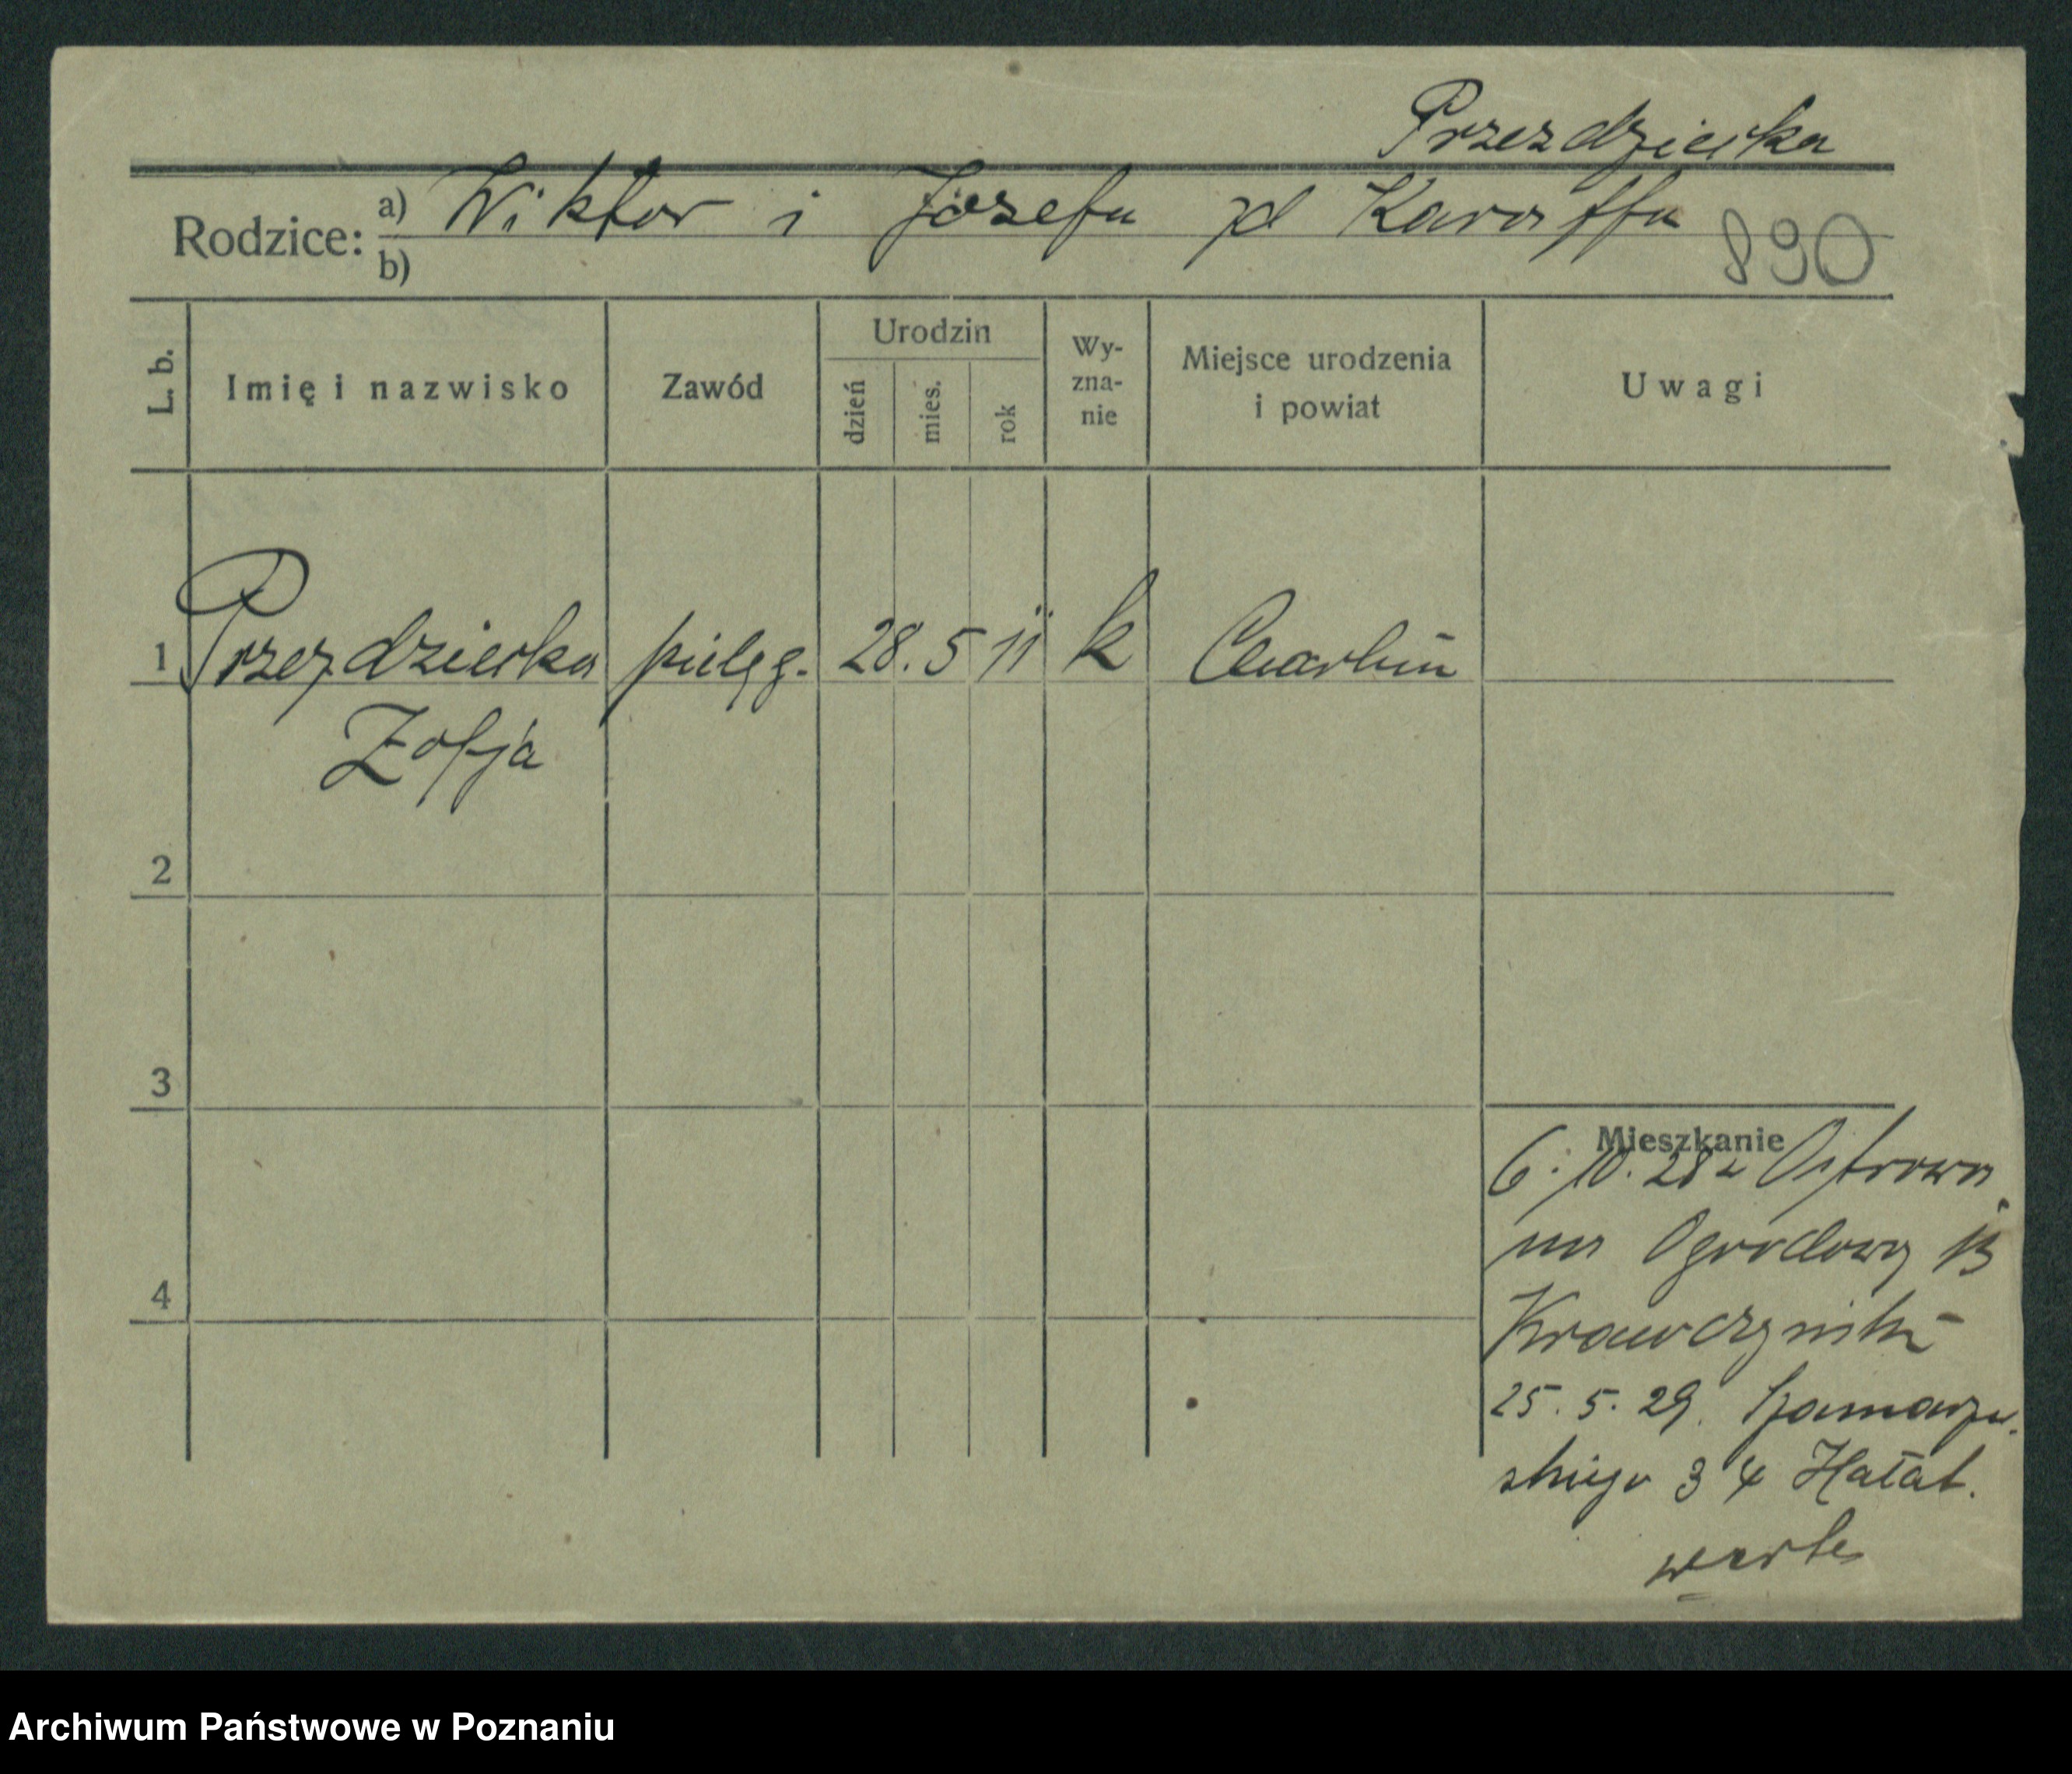 Przezdziecka
Rodzice: a) Wiktor i Józefa zd
b)
890
L. b.
Imię i nazwisko
Zawód
Urodzin
dzień
mies.
rok
Wy-
zna-
nie
Miejsce urodzenia
i powiat
Uwagi
1 Przezdziecka pielęg. 28. 5 11 k
Zofja
2
3
4
Mieszkanie
6. 10. 28 z Ostrowa
na Ogrodowy 13
25. 5. 29.
skiego 34 Hałat.
Archiwum Państwowe w Poznaniu